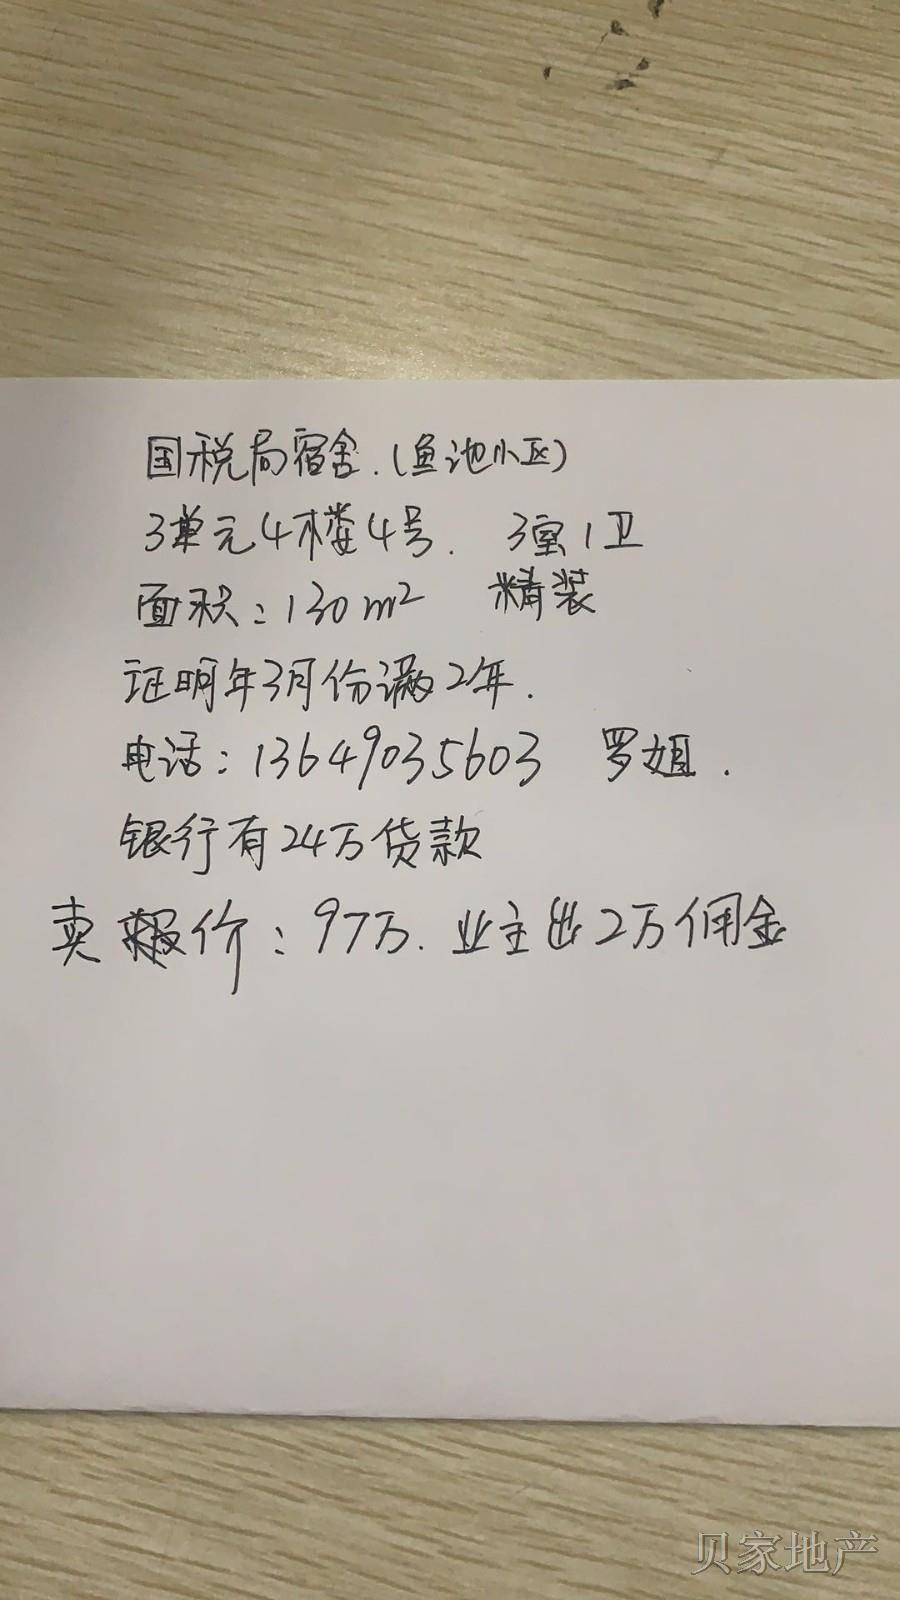 国税局宿舍.(鱼池小区)
3单元4楼4号. 3室1卫
面积:130m² 精装
证明年3月份满2年.
电话:13649035603 罗姐.
银行有24万贷款
卖报价:97万.业主出2万佣金
贝家地产